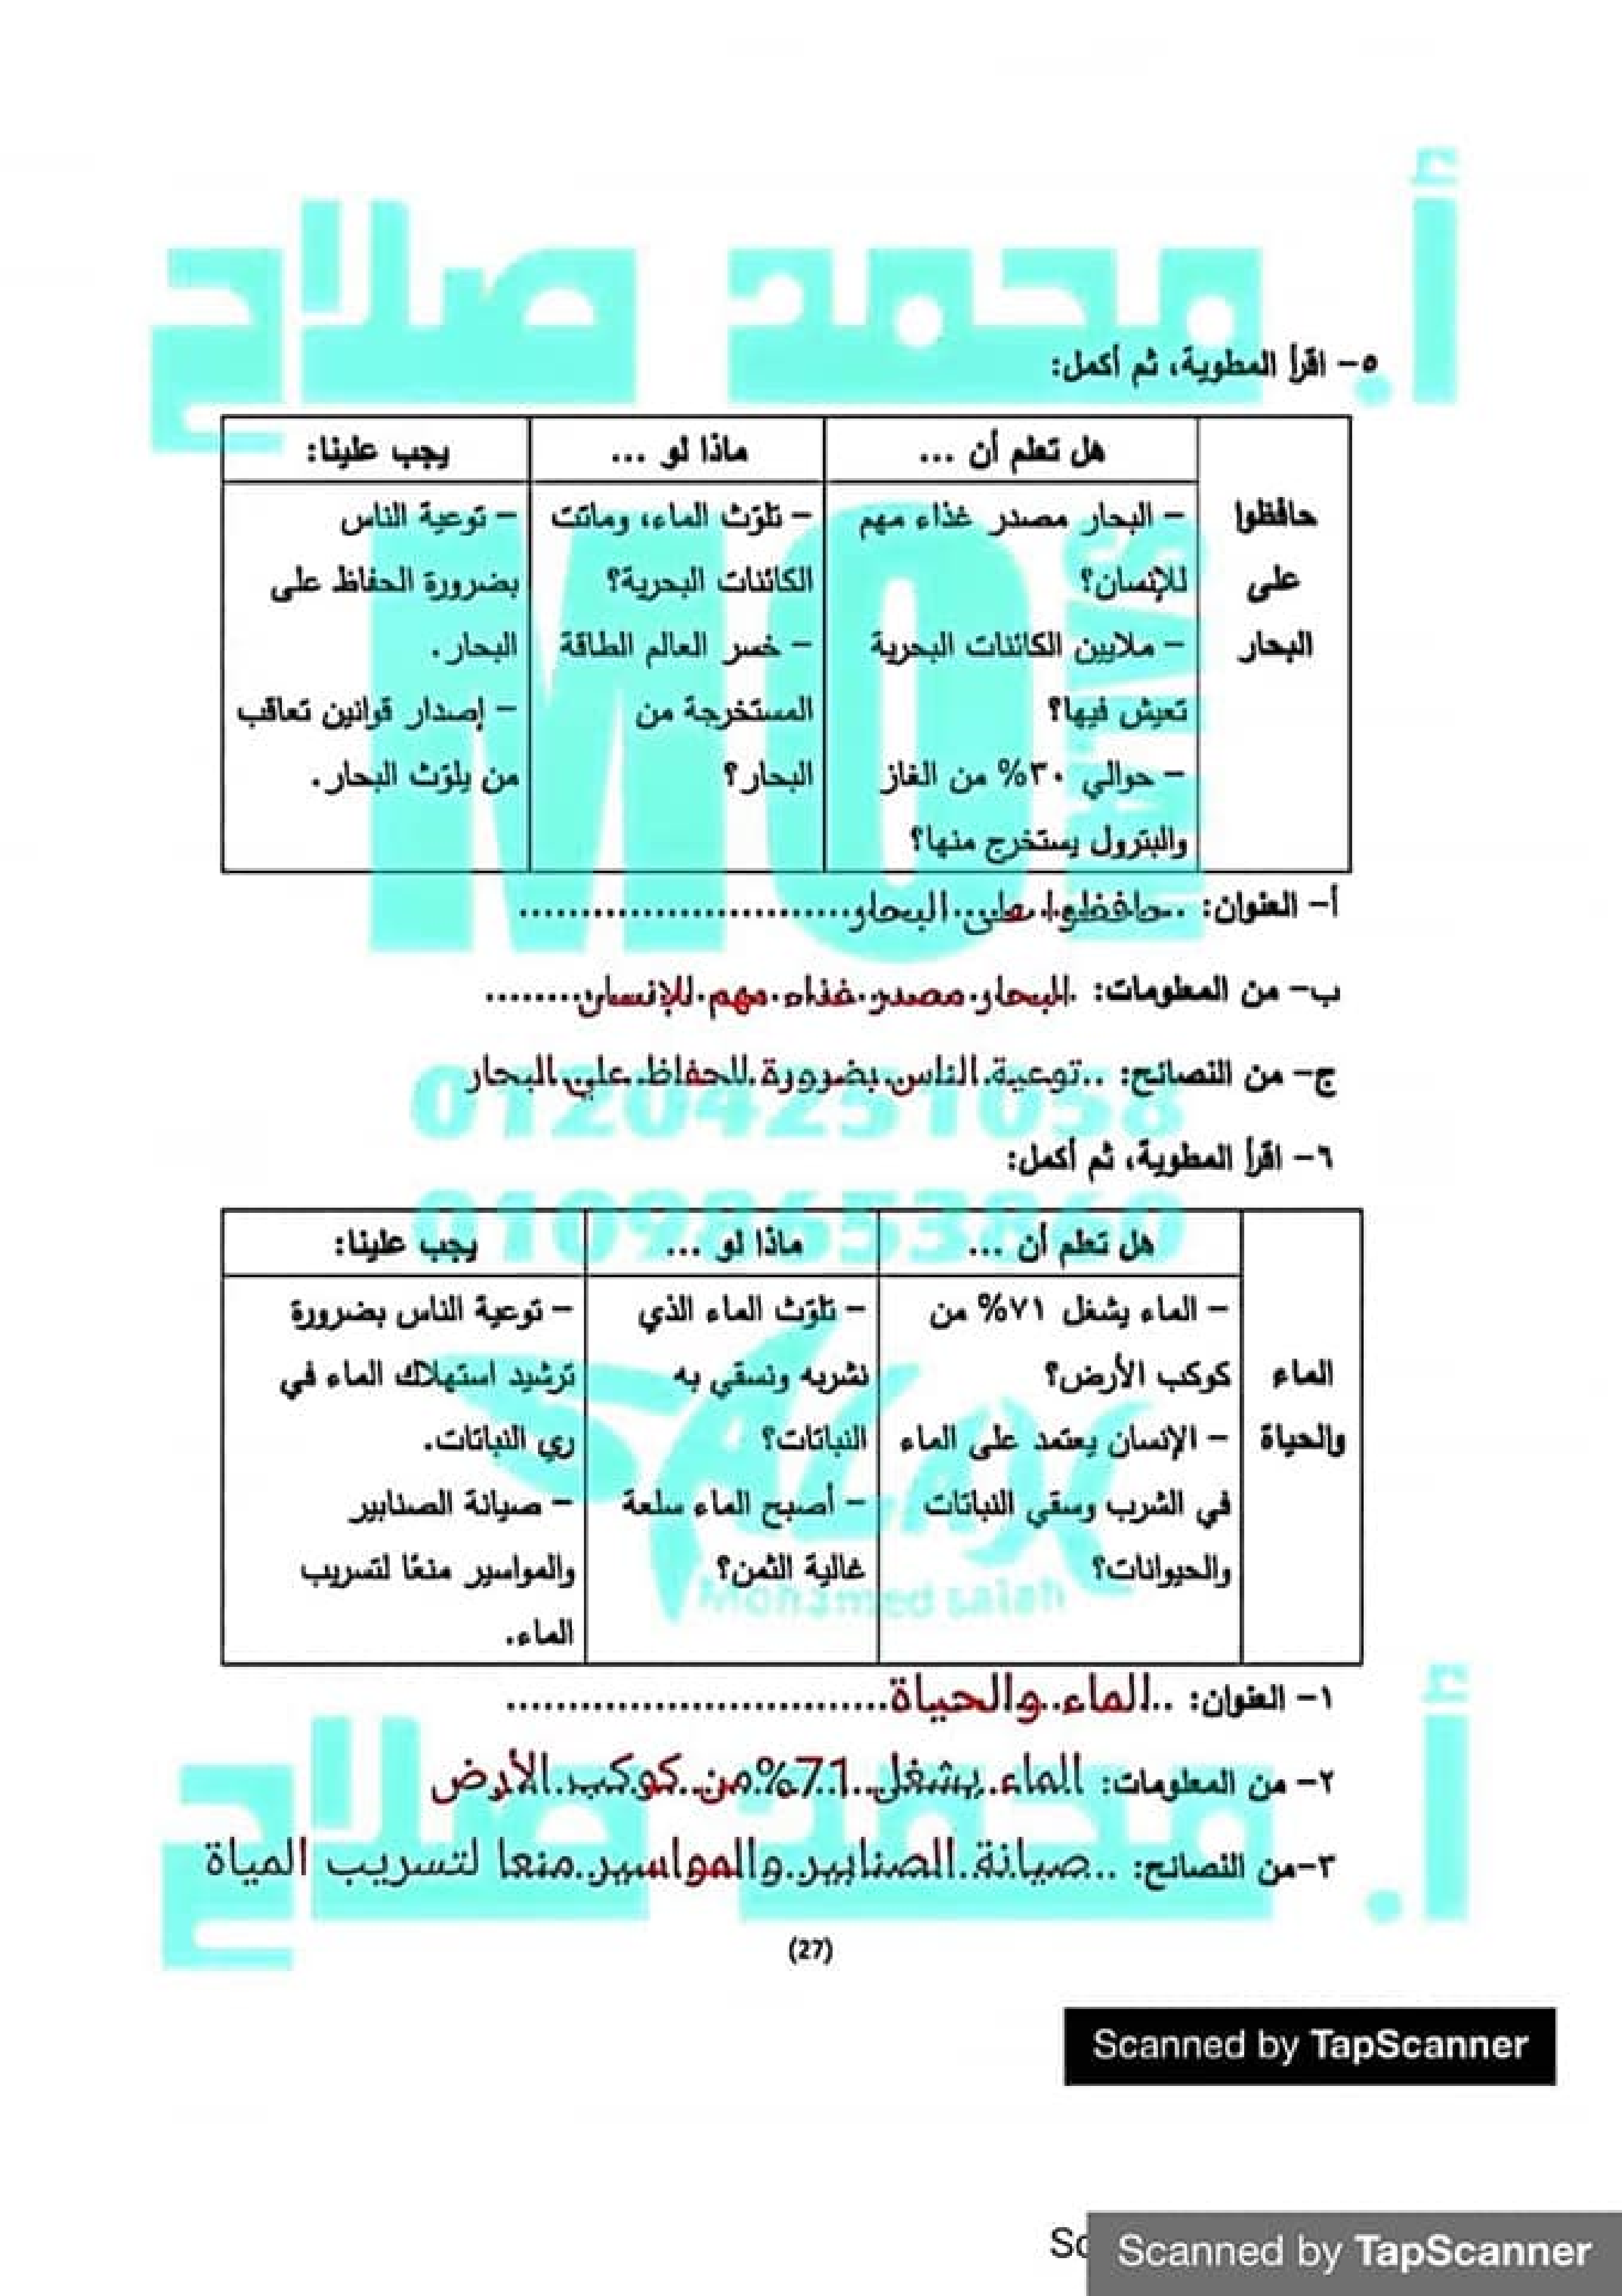 أ. محمد صلاح
٥- اقرأ المطوية، ثم أكمل:
حافظوا
على
البحار
هل تعلم أن ...
- البحار مصدر غذاء مهم
للإنسان؟
- ملايين الكائنات البحرية
تعيش فيها؟
- حوالي ٣٠% من الغاز
والبترول يستخرج منها؟
ماذا لو ...
- تلوّث الماء، وماتت
الكائنات البحرية؟
- خسر العالم الطاقة
المستخرجة من
البحار؟
يجب علينا:
- توعية الناس
بضرورة الحفاظ على
البحار.
- إصدار قوانين تعاقب
من يلوّث البحار.
MO
أ- العنوان: ..حافظوا على البحار...........................
ب- من المعلومات: البحار مصدر غذاء مهم للإنسان........
ج- من النصائح: ..توعية الناس بضرورة للحفاظ علي البحار
01204251058
٦- اقرأ المطوية، ثم أكمل:
01098653860
الماء
والحياة
هل تعلم أن ...
- الماء يشغل ٧١% من
كوكب الأرض؟
- الإنسان يعتمد على الماء
في الشرب وسقي النباتات
والحيوانات؟
ماذا لو ...
- تلوّث الماء الذي
نشربه ونسقي به
النباتات؟
- أصبح الماء سلعة
غالية الثمن؟
يجب علينا:
- توعية الناس بضرورة
ترشيد استهلاك الماء في
ري النباتات.
- صيانة الصنابير
والمواسير منعًا لتسريب
الماء.
Mohamed salah
١- العنوان: ..الماء والحياة...............................
٢- من المعلومات: الماء يشغل 71% من كوكب الأرض
٣-من النصائح: ..صيانة الصنابير والمواسير منعا لتسريب المياة
أ. محمد صلاح
(27)
Scanned by TapScanner
Sc
Scanned by TapScanner